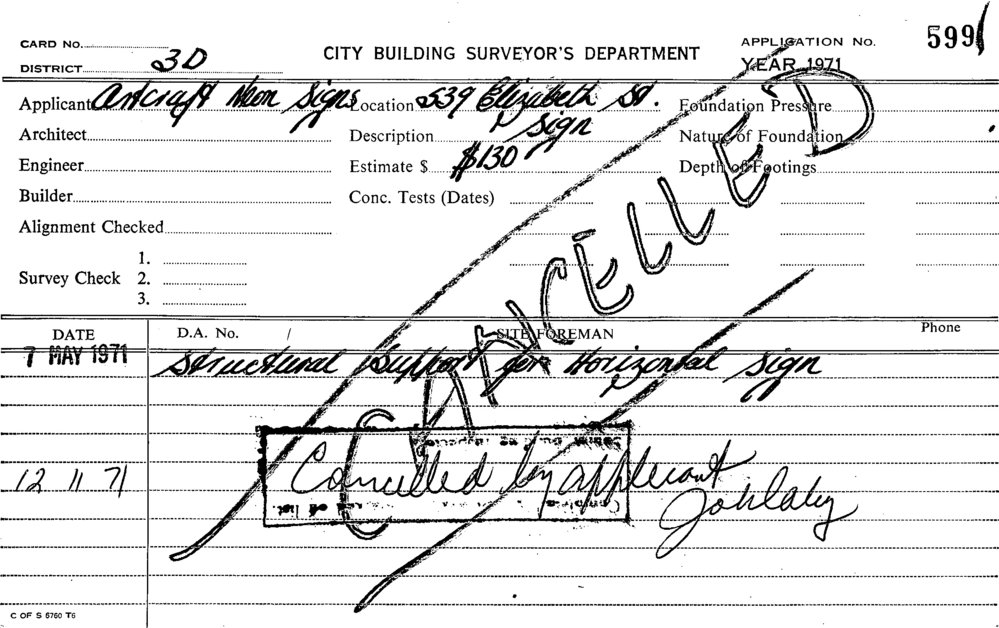 CARD No. CITY BUILDING SURVEYOR'S DEPARTMENT APPLICATION No. 599
DISTRICT 3D YEAR 1971
Applicant Artcraft Neon Signs Location 539 Elizabeth St. Foundation Pressure
Architect Description Sign Nature of Foundation
Engineer Estimate $ $130 Depth of Footings
Builder Conc. Tests (Dates)
Alignment Checked
1.
Survey Check 2.
3.
CANCELLED
DATE D.A. No. / SITE FOREMAN Phone
7 MAY 1971 Structural Support for Horizontal Sign
12 11 71 Cancelled by applicant
C OF S 6760 T6